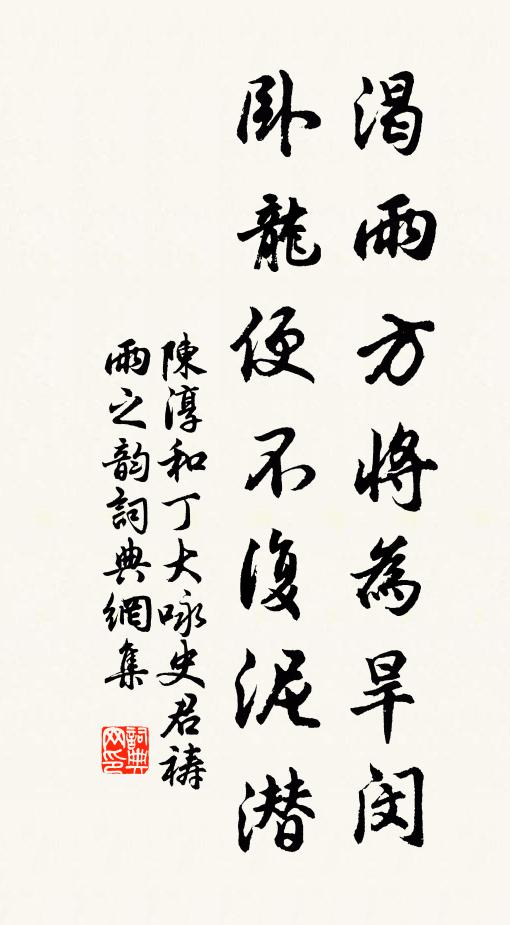 渴雨方將為旱閔
卧龍便不復泥潛
陳淳和丁大咏史君禱
雨之韵詞典網集
詞典網印